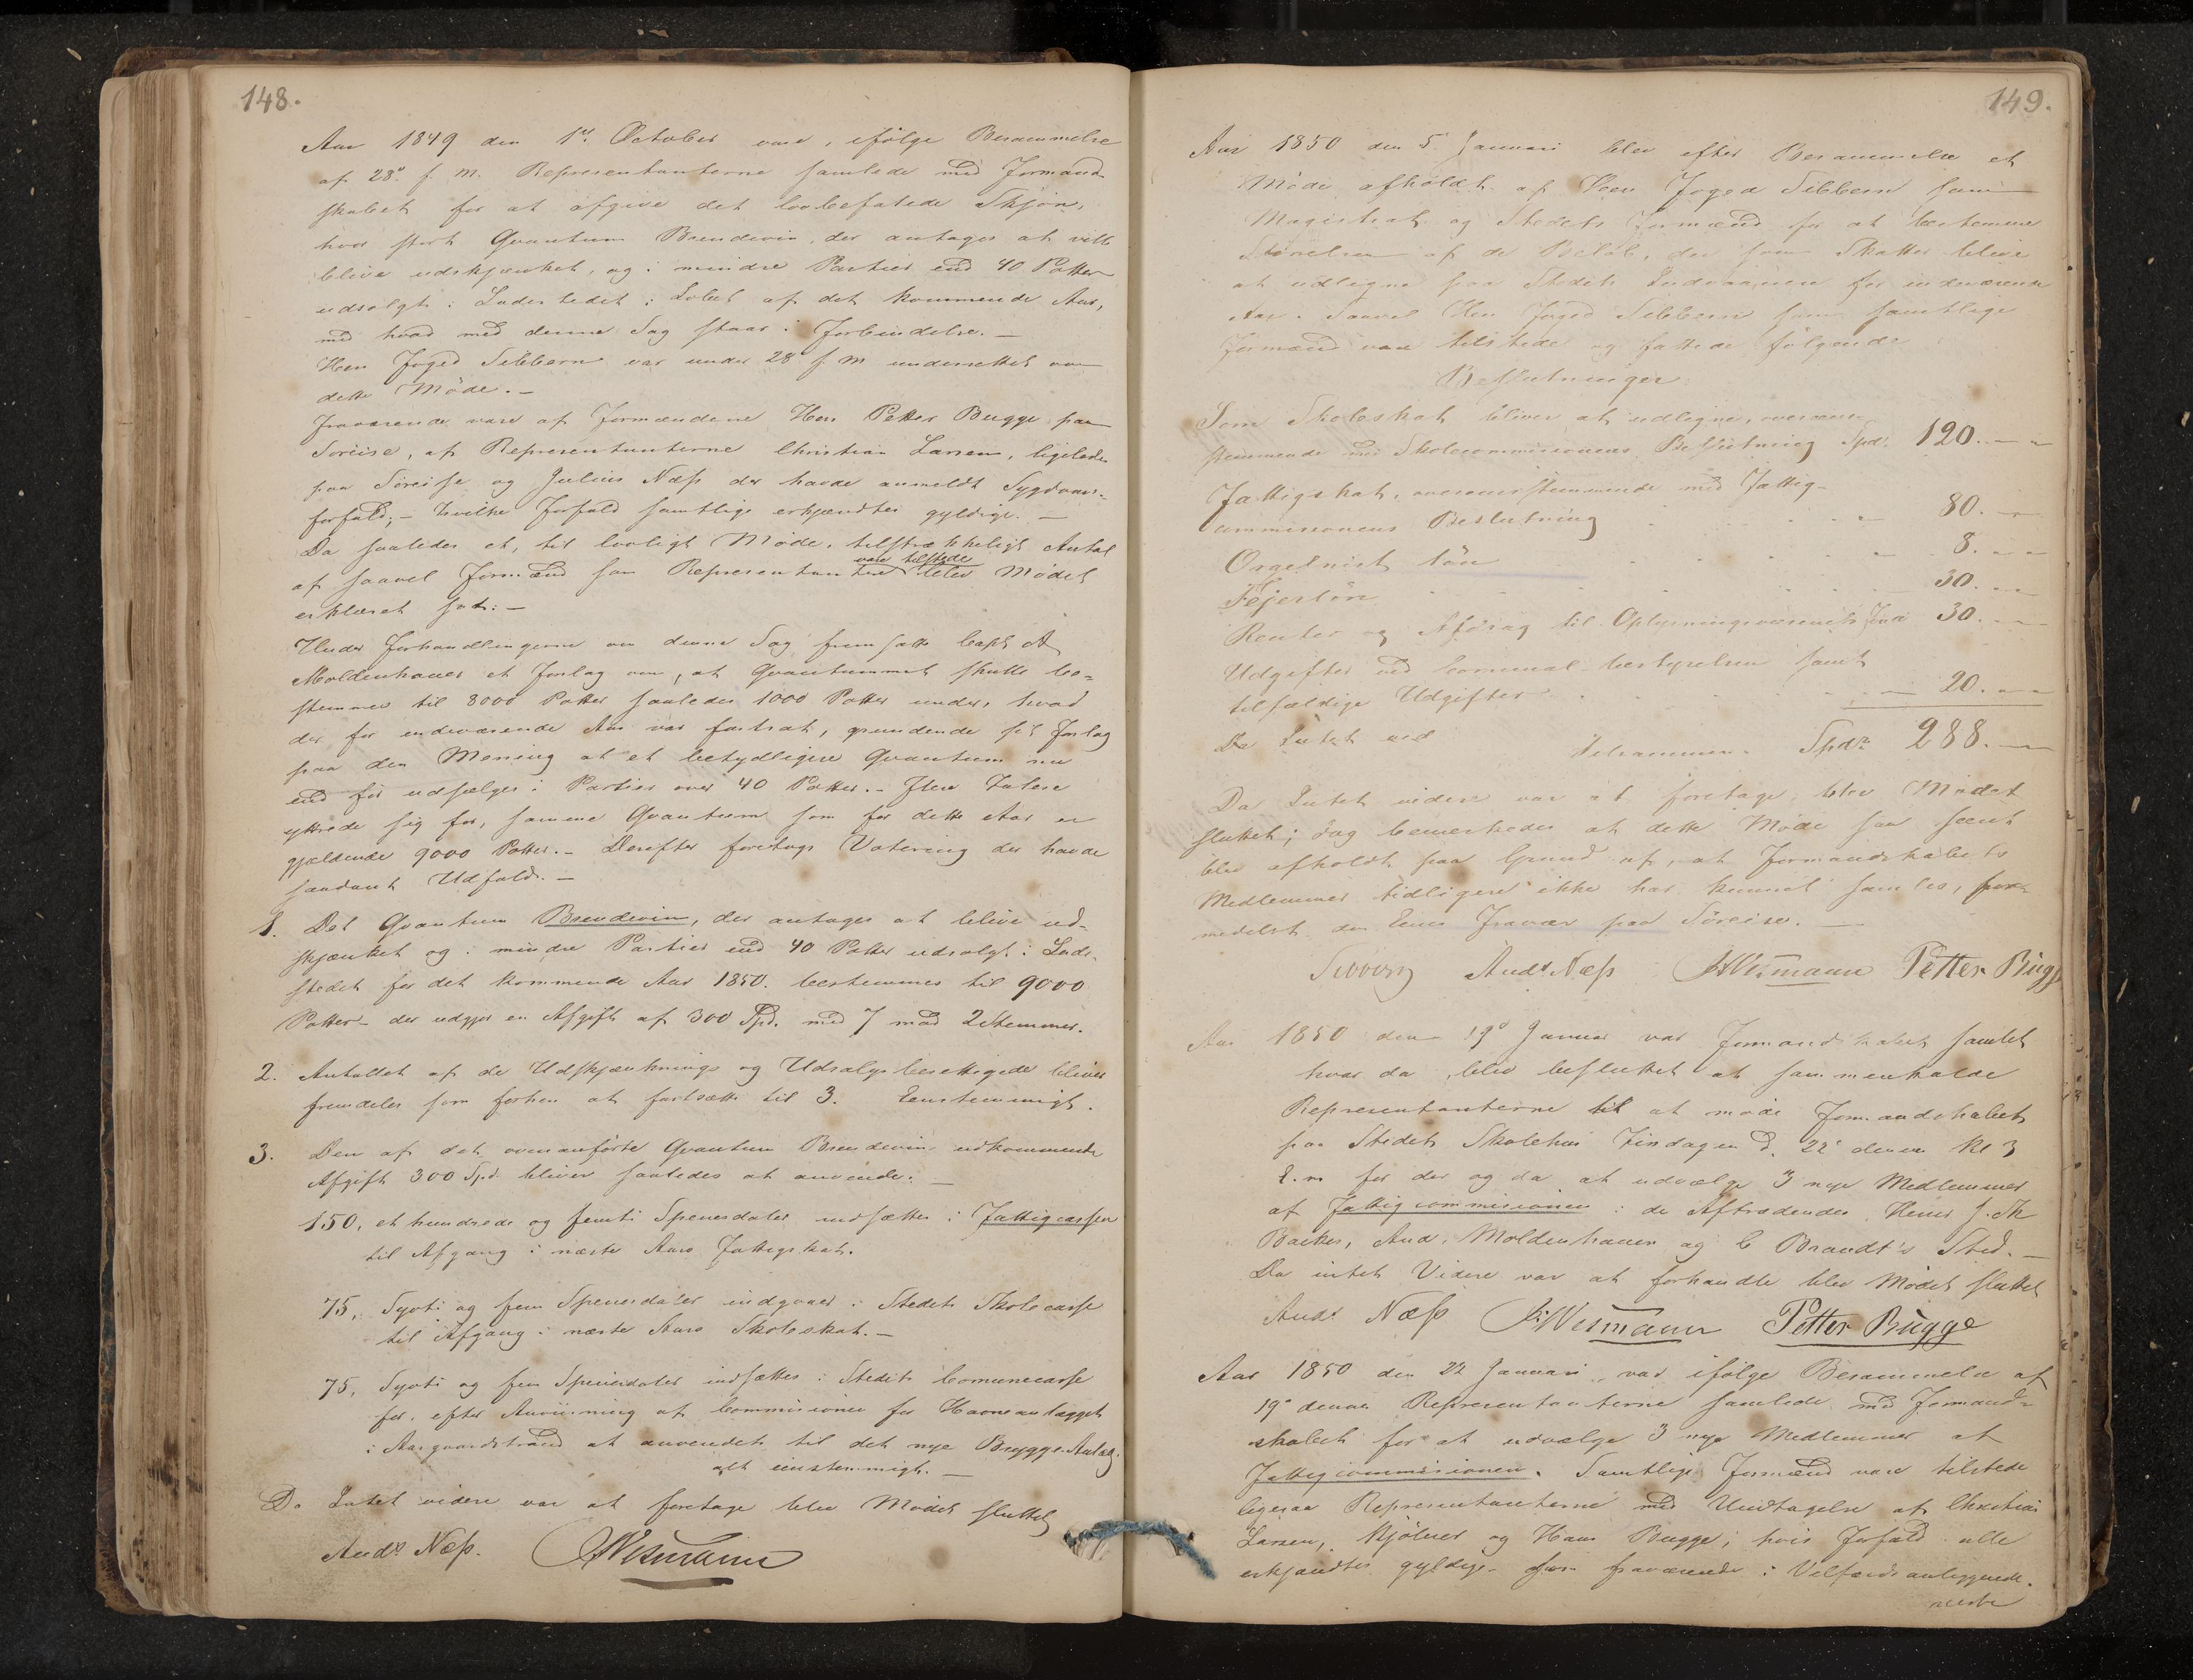 148.
Aar 1849 den 1ste October vare, ifølge Berammelse
af 28de f. M. Repræsentanterne samlede med Formand
skabet for at afgive det lovbefalede Skjøn,
hvor stort Qvantum Brændeviin, der antages at ville
blive udskjænket, og i mindre Partier end 40 Potter
udsolgt i Ladestedet i Løbet af det kommende Aar,
med hvad med denne Sag staar i Forbindelse. —
Herr Foged Sibbern var under 28de f. M. underrettet om
dette Møde. —
Fraværende vare af Formændene Herr Petter Bugge paa
Søreise, af Repræsentanterne Christian Larsen, ligeledes
paa Søreise og Julius Næss der havde anmeldt Sygdoms-
forfald; — hvilke Forfald samtlige erkjendtes gyldige. —
Da saaledes et, til lovligt Møde, tilstrækkeligt Antal
af saavel Formænd som Repræsentantere vare tilstede blev Mødet
erklæret sat. —
Under Forhandlingerne om denne Sag fremsatte Capt A
Moldenhauer et Forslag om, at Qvantummet skulle be-
stemmes til 8000 Potter saaledes 1000 Potter under, hvad
der for indeværende Aar var fastsat, grundende sit Forslag
paa den Mening at et betydligere Qvantum nu
end før udsælges i Partier over 40 Potter. — Flere Talere
yttrede sig for, samme Qvantum som for dette Aar er
gjældende 9000 Potter. — Derefter foretoges Votering der havde
saadant Udfald. —
1. Det Qvantum Brændeviin, der antages at blive ud-
skjænket og i mindre Partier end 40 Potter udsolgt i Lade-
stedet for det kommende Aar 1850. bestemmes til 9000
Potter — der udgjør en Afgift af 300 Spd. med 7 mod 2 Stemmer.
2. Antallet af de Udskjænknings og Udsalgsberettigede bliver
fremdeles som forhen at fastsætte til 3. Eenstemmigt.
3. Den af det ovenanførte Qvantum Brændeviin udkommende
Afgift 300 Spd. bliver saaledes at anvende: —
150, et hundrede og femti Speciesdaler indsættes i Fattigcassen
til Afgang i næste Aars Fattigskat.
75, Sytti og fem Speciesdaler indgaaer i Stedets Skolecasse
til Afgang i næste Aars Skoleskat. —
75, Sytti og fem Speciesdaler indsættes i Stedets Comunecasse
for, efter Anviisning af Commisionen for Havneanlægget
i Aasgaardstrand at anvendes til det nye Brygge-Anlæg.
alt eenstemmigt. —
Da Intet videre var at foretage blev Mødet sluttet
Ands Næss. Wesmann
149.
Aar 1850 den 5. Januari blev efter Berammelse et
Møde afholdt af Herr Foged Sibbern som
Magistrat og Stedets Formænd for at bestemme
Størrelsen af de Beløb, der som Skatter blive
at udligne paa Stedets Indvaanere for indeværende
Aar. Saavel Herr Foged Sibbern som samtlige
Formænd vare tilstede og fattede følgende
Beslutninger
Som Skoleskat bliver at udligne, overeens-
stemmende med Skolecommissionens Beslutning Spd. 120. — —
Fattigskat, overeensstemmende med Fattig-
commissionens Beslutning 80. —
Orgelnist løn 8. — —
Fejerløn 30. — —
Renter og Afdrag til Oplysningsvæsenets Fond 30. — —
Udgifter ved Communal-bestyrelsen samt
tilfældige Udgifter 20. — —
Da Intet vid
Tilsammen Spdr 288. —
Da Intet videre var at foretage blev Mødet
sluttet; dog bemærkedes at dette Møde saa seent
blev afholdt paa Grund af, at Formandskabets
Medlemmer tidligere ikke har kunnet samles, for-
medelst den Enes Fravær paa Søreise. —
Sibbern Ands Næss Wesmann Petter Bugge
Aar 1850 den 19de Januar var Formandskabet samlet
hvor da blev besluttet at sammenkalde
Repræsentanterne til at møde Formandskabet
paa Stedets Skolehus Tirsdagen d. 22de dennes Kl 3
E.m for der og da at udvælge 3 nye Medlemmer
af Fattigcommisionen i de Aftrædendes, Herrer J. Th
Backer, And. Moldenhauer og C Brandt's Sted. —
Da intet Videre var at forhandle blev Mødet sluttet
Ands Næss Wesmann Petter Bugge
Aar 1850 den 22 Januari var ifølge Berammelse af
19de dennes Repræsentanterne samlede med Formand-
skabet for at udvælge 3 nye Medlemmer af
Fattigcommisionen. Samtlige Formænd vare tilstede
ligesaa Repræsentanterne med Undtagelse af Christian
Larsen, Kjølner og Hans Bugge; hvis Forfald alle
erkjendtes gyldige som fraværende i Velfærdsanliggende.
næste